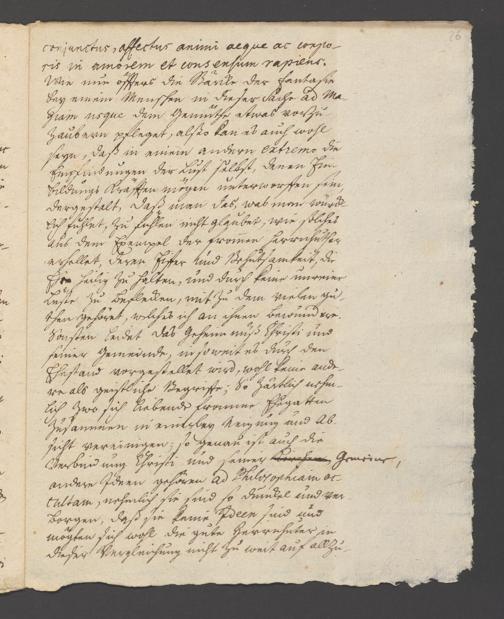 26
conjunctus, affectus animi aeque ac corpo-
ris in amorem et consensum rapiens.
Wie nun öffters die Stärcke der Fantasie
bey einem Menschen in dieser Sache ad Ma-
giam usque dem Gemüthe etwas vorzu
zaubern pfleget, also kan es auch wohl
seyn, daß in einem andern extremo die
Empfindungen der Lust selbst, denen Ein-
bildungs Kräfften mögen unterworffen seyn,
dergestalt, daß man das, was man würckl
fühlet, zu fühlen nicht glaubet, wie solches
aus dem Exempel der frommen Herrnhuther
erhellet, deren Eiffer und Behutsamkeit, die
Ehe heilig zu halten, und durch keine unreine
Lüste zu beflecken, mit zu dem vielen gu-
ten gehöret, welches ich an ihnen bewundere.
Sonsten leidet das Geheimnüß Christi und
seiner Gemeinde, in soweit es durch den
Ehestand vorgestellet wird, wohl keine ande-
re als geistliche Begriffe; So zärtlich nehm-
lich zwo sich liebende fromme Ehegatten
zusammen in einerley Neigung und Ab-
sicht vereinigen; so genau ist auch die
Verbindung Christi und seiner Gemeine,
andere Ideen gehören ad Philosophiam oc-
cultam, nehmlich sie sind so dunckel und ver-
borgen, daß sie keine Ideen sind und
möchten sich wohl die gute Herrnhuter in
dieser Vergleichung nicht zu weit auf allzu-